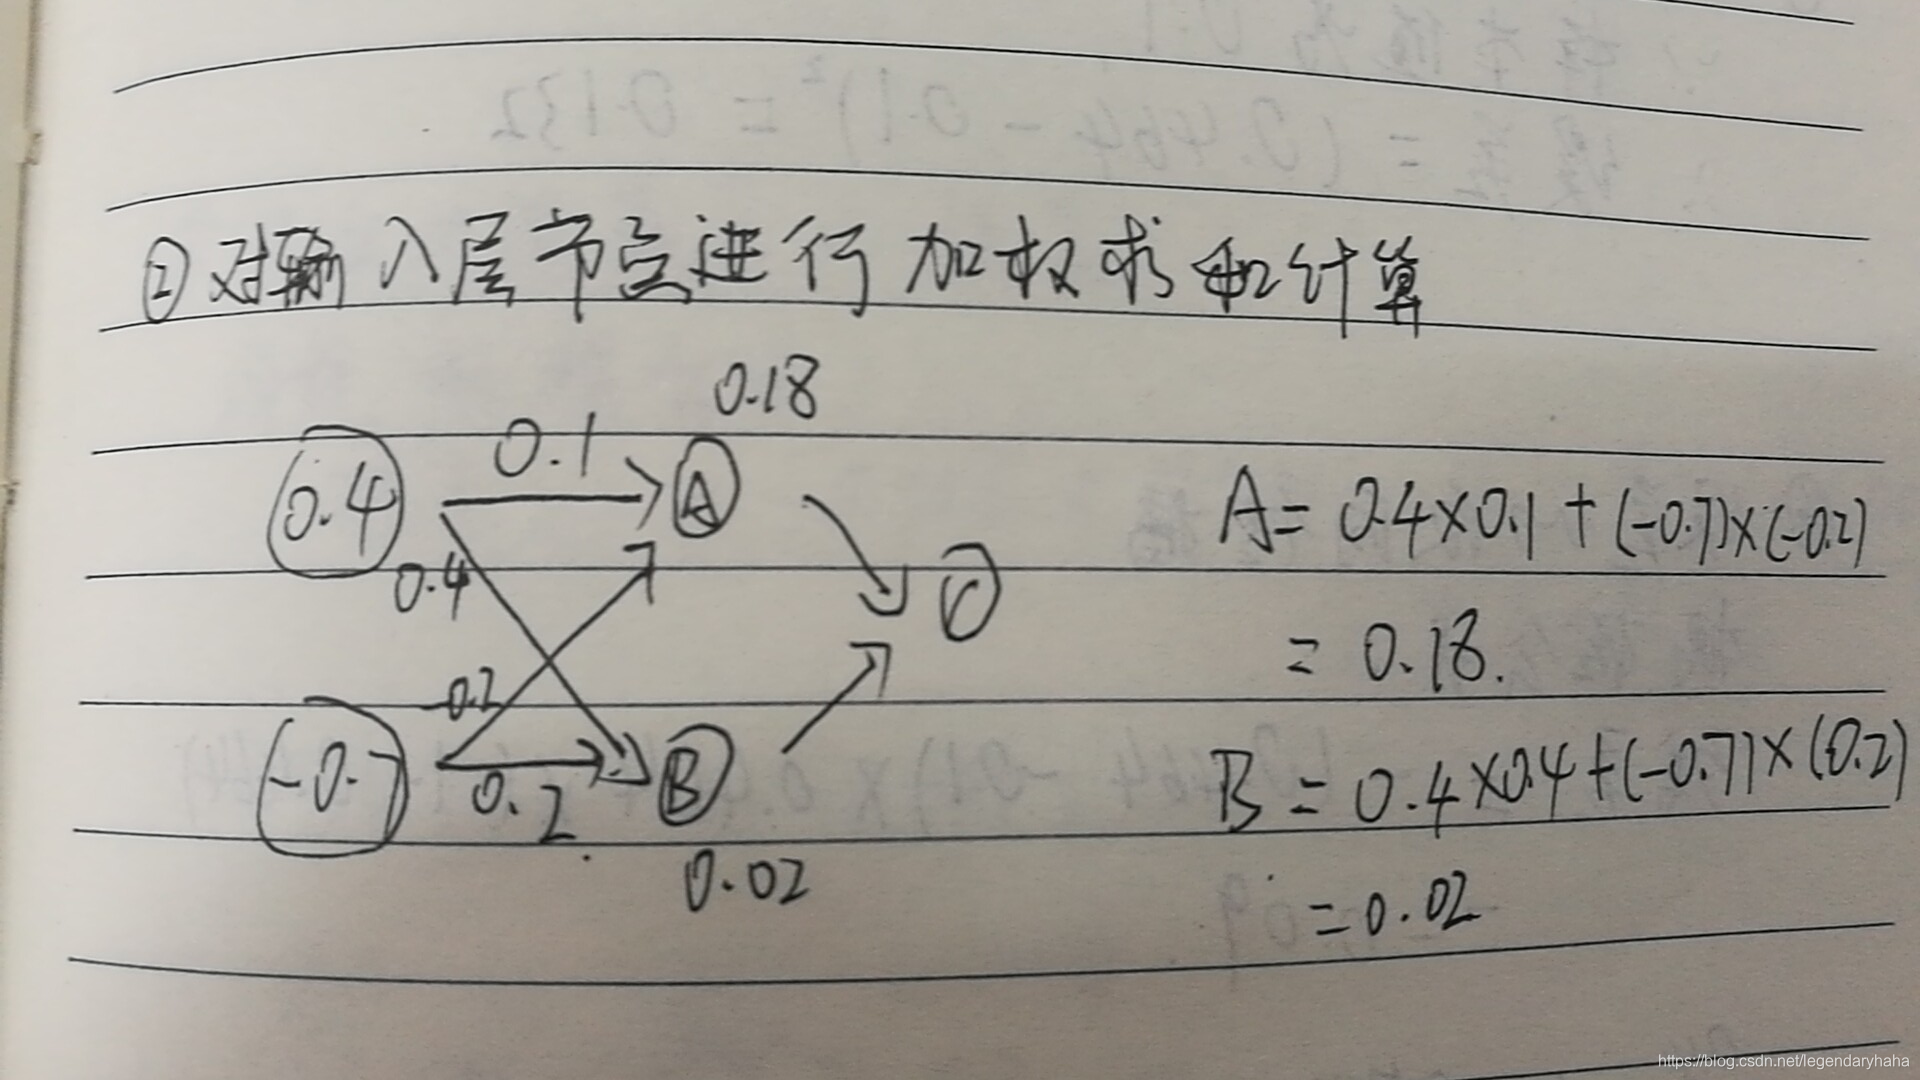 ②对输入层节点进行加权求和计算
0.18
0.4
0.1
A
A = 0.4×0.1 + (-0.7)×(-0.2)
0.4
C
= 0.18.
-0.2
-0.7
0.2
B
B = 0.4×0.4+(-0.7)×(0.2)
0.02
= 0.02
https://blog.csdn.net/legendaryhaha